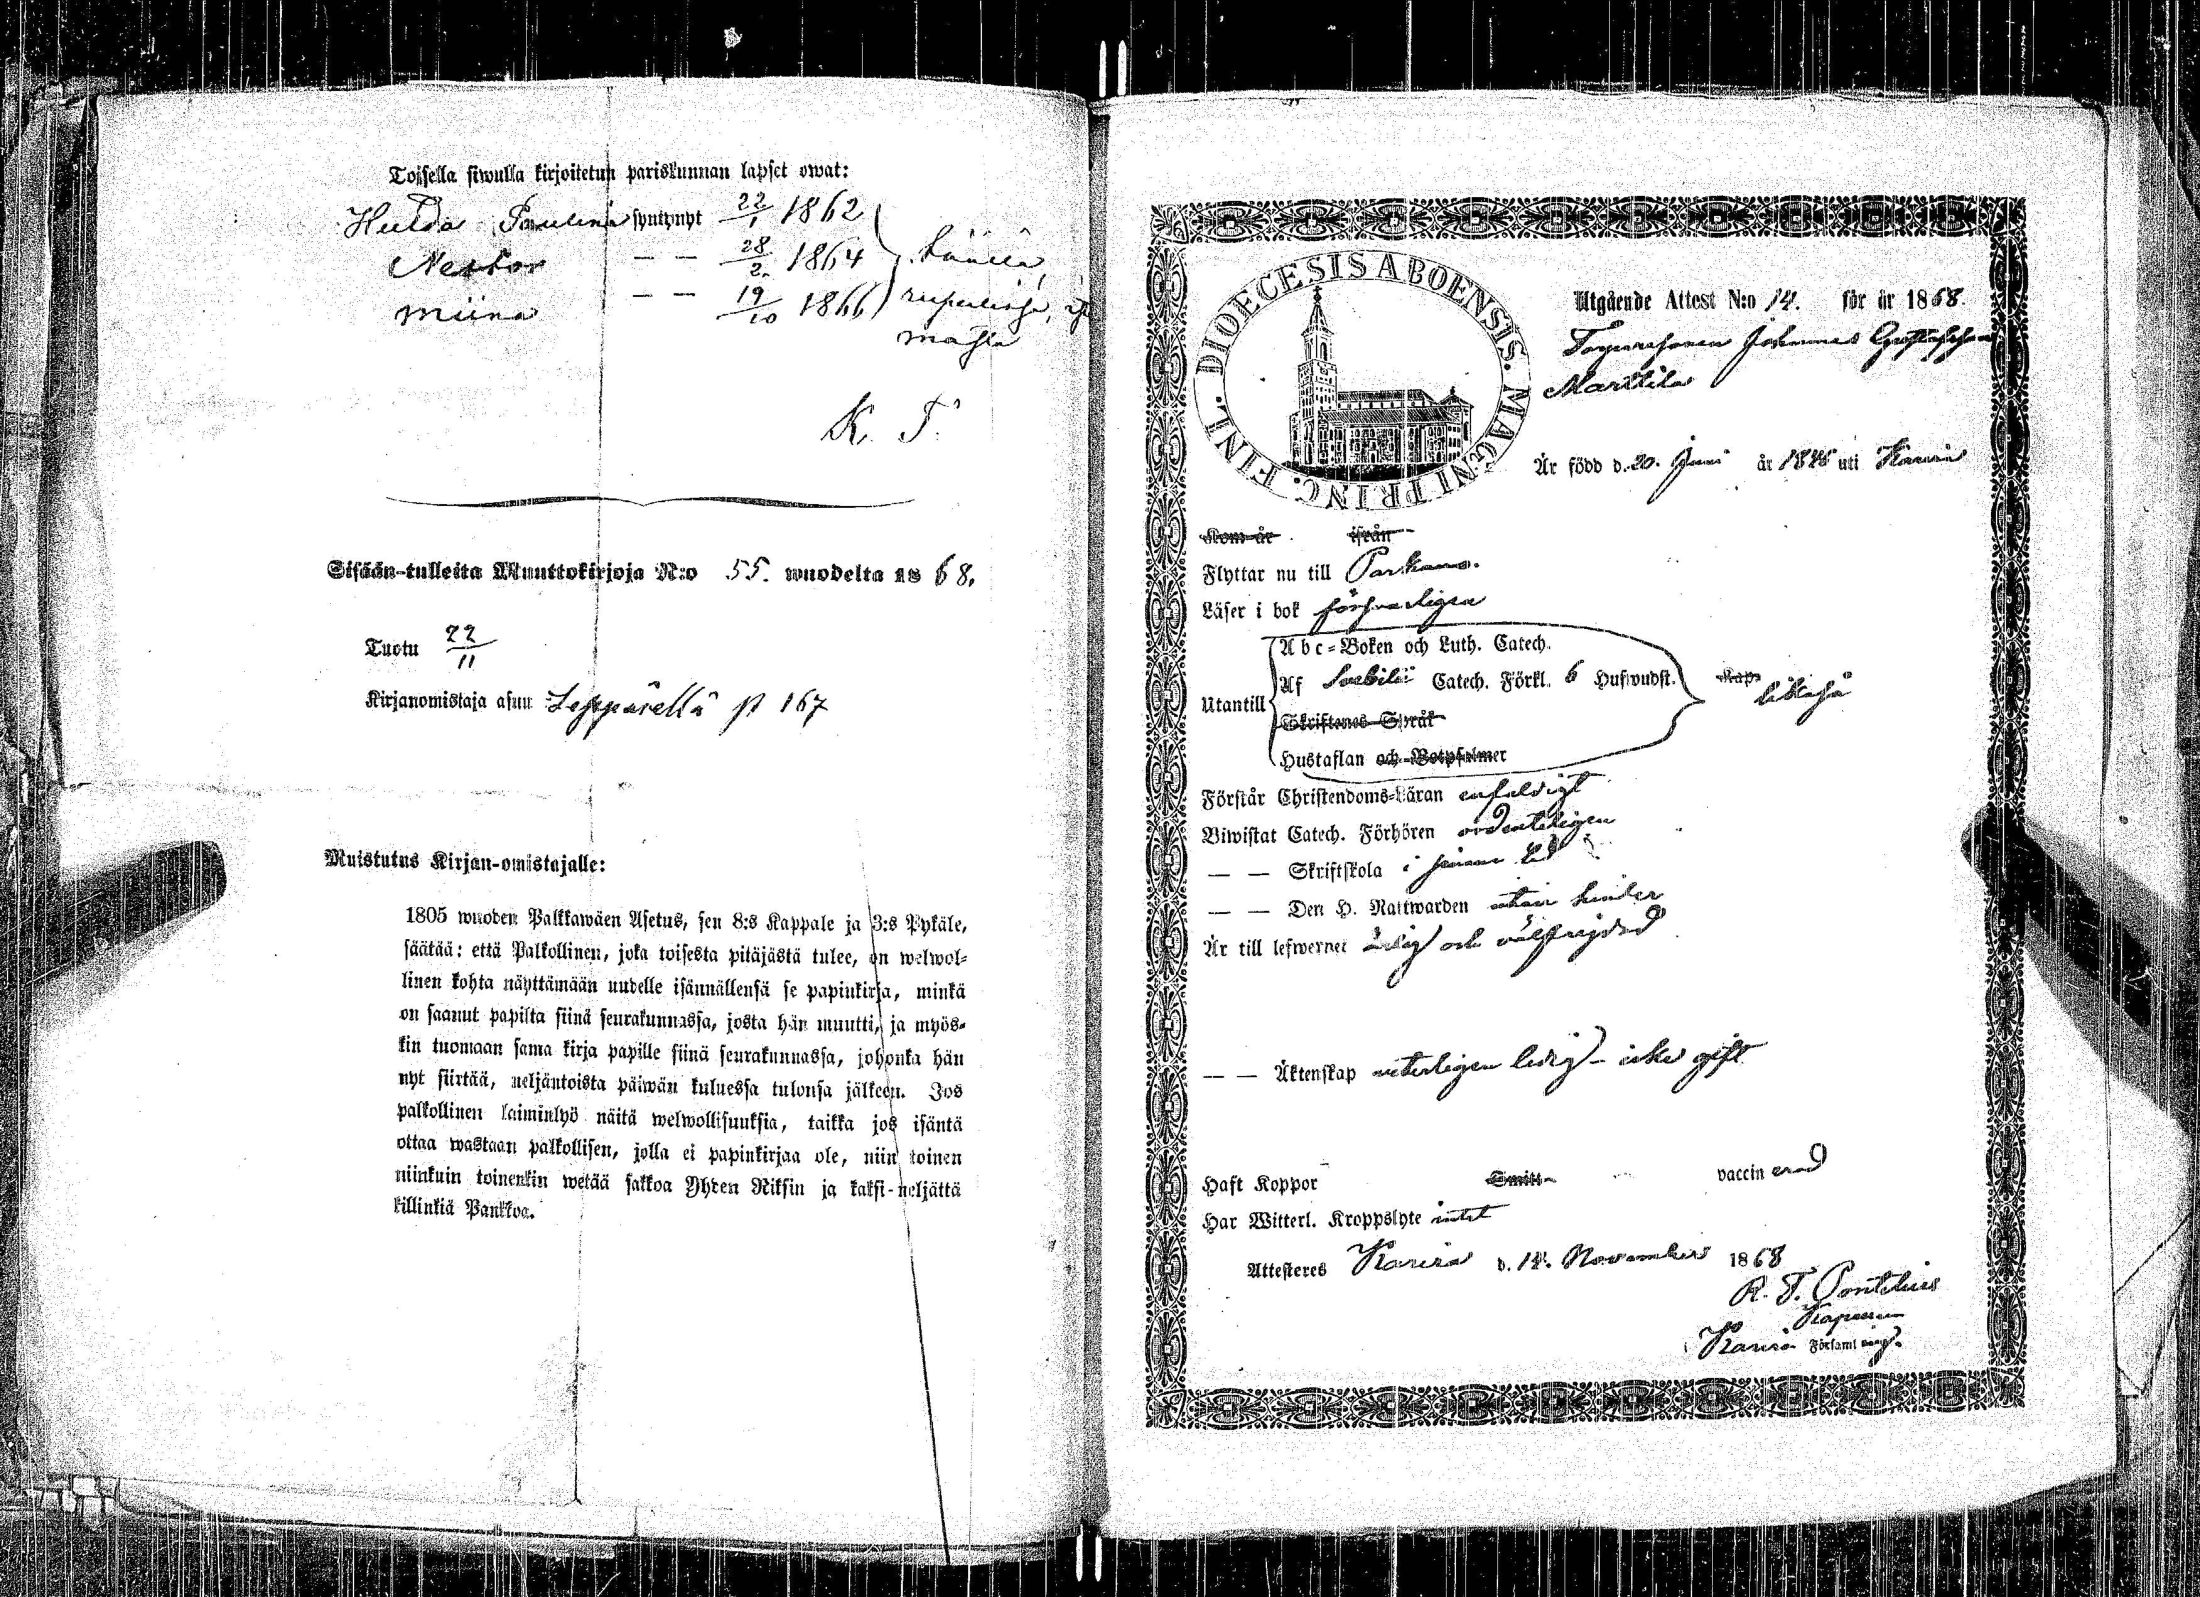 Toisella siwulla kirjoitetun pariskunnan lapset owat:
Hulda Paulina syntynyt 22/1 1862
Nestor — — 28/2 1864
Miina — — 19/10 1866
K. T.
Sisään-tulleita Muuttokirjoja N:o 55. wuodelta 1868.
Tuotu 22/11
Kirjanomistaja asuu Leppäsellä p 167
Muistutus Kirjan-omistajalle:
1805 wuoden Palkkawäen Asetus, sen 8:s Kappale ja 3:s Pykäle,
säätää: että Palkollinen, joka toisesta pitäjästä tulee, on welwol-
linen kohta näyttämään uudelle isännällensä se papinkirja, minkä
on saanut papilta siinä seurakunnassa, josta hän muutti, ja myös-
kin tuomaan sama kirja papille siinä seurakunnassa, johonka hän
nyt siirtää, neljäntoista päiwän kuluessa tulonsa jälkeen. Jos
palkollinen laiminlyö näitä welwollisuuksia, taikka jos isäntä
ottaa wastaan palkollisen, jolla ei papinkirjaa ole, niin toinen
niinkuin toinenkin wetää sakkoa Yhden Riksin ja kaksi-neljättä
killinkiä Pankkoa.
DIOECESIS ABOENSIS. MAGNI PRINC. FINL.
Utgående Attest N:o 14. för år 1868.
Torparesonen Johannes Gustafsson
Marttila
Är född d. 20. Juni år 1846 uti Karvia
Kom år ifrån
Flyttar nu till Parkano.
Läser i bok försvarligen
Abc-Boken och Luth. Catech.
Utantill Af Svebilii Catech. Förkl. 6 Hufwudst. Kap. likaså
Skriftenes Språk
Hustaflan och Botpsalmer
Förstår Christendoms-Läran enfaldigt
Biwistat Catech. Förhören ordenteligen
— — Skriftskola i sinom tid
— — Den H. Nattwarden utan hinder
Är till lefwernet ärlig och välfrejdad
— — Äktenskap veterligen ledig – icke gift
Haft Koppor Smitt- vaccinerad
Har Witterl. Kroppslyte intet
Attesteres Karvia d. 14. November 1868
R. T. Pontelius
Kapellan
Karvia Församling.